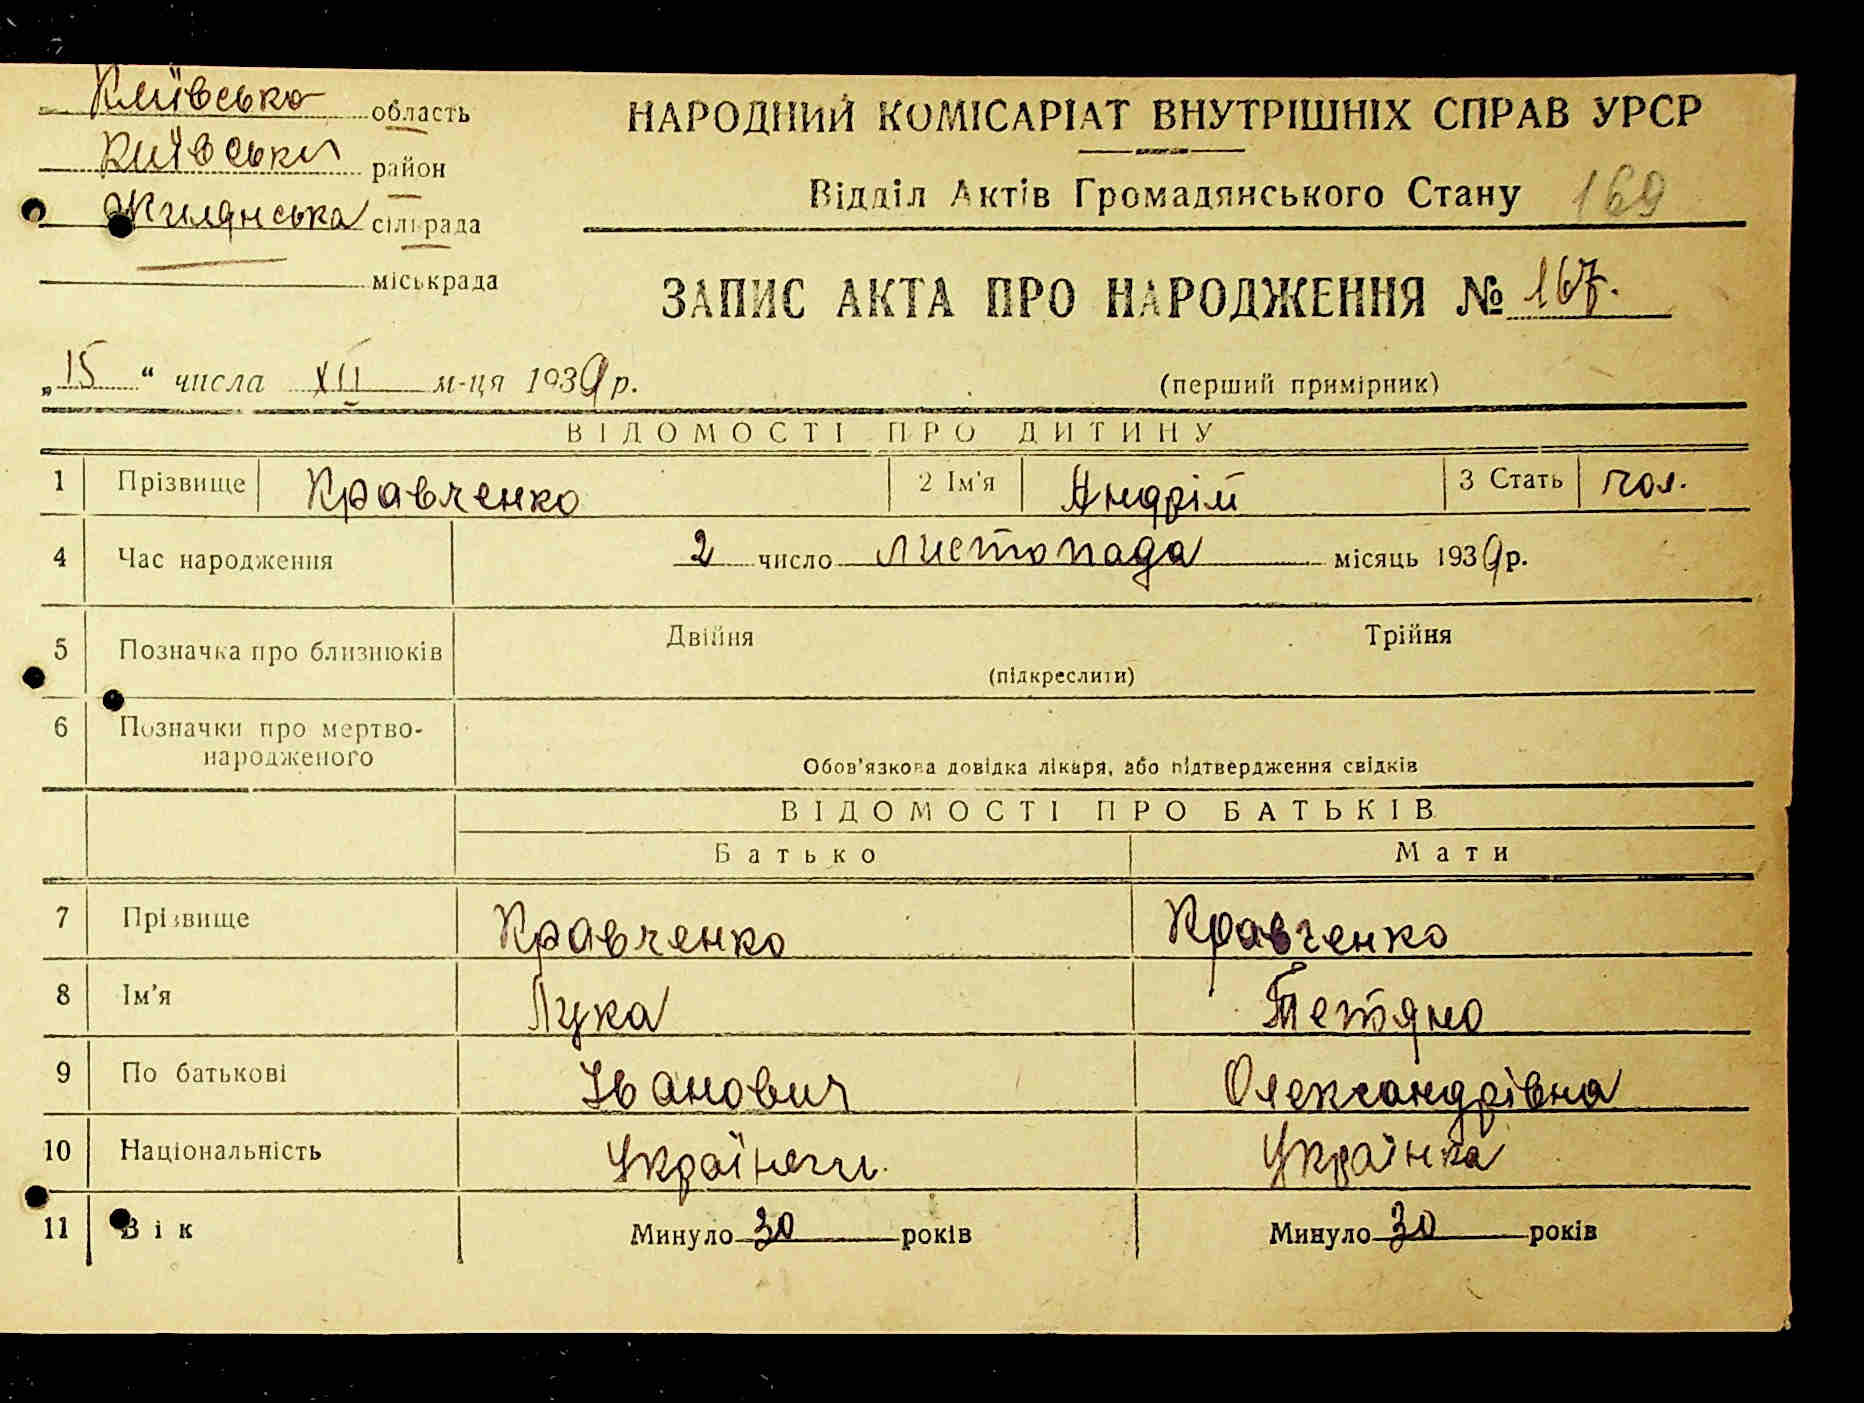 Київська область
Київський район
Жилянська сільрада
міськрада
НАРОДНИЙ КОМІСАРІАТ ВНУТРІШНІХ СПРАВ УРСР
Відділ Актів Громадянського Стану 169
ЗАПИС АКТА ПРО НАРОДЖЕННЯ № 167.
„15“ числа XII м-ця 1939 р. (перший примірник)
ВІДОМОСТІ ПРО ДИТИНУ
1 Прізвище Кравченко 2 Ім'я Андрій 3 Стать чол.
4 Час народження 2 число листопада місяць 1939 р.
5 Позначка про близнюків Двійня Трійня
(підкреслити)
6 Позначки про мертво-
народженого
Обов'язкова довідка лікаря, або підтвердження свідків
ВІДОМОСТІ ПРО БАТЬКІВ
Батько Мати
7 Прізвище Кравченко Кравченко
8 Ім'я Лука Тетяна
9 По батькові Іванович Олександрівна
10 Національність Українець. Українка
11 Вік Минуло 30 років Минуло 30 років